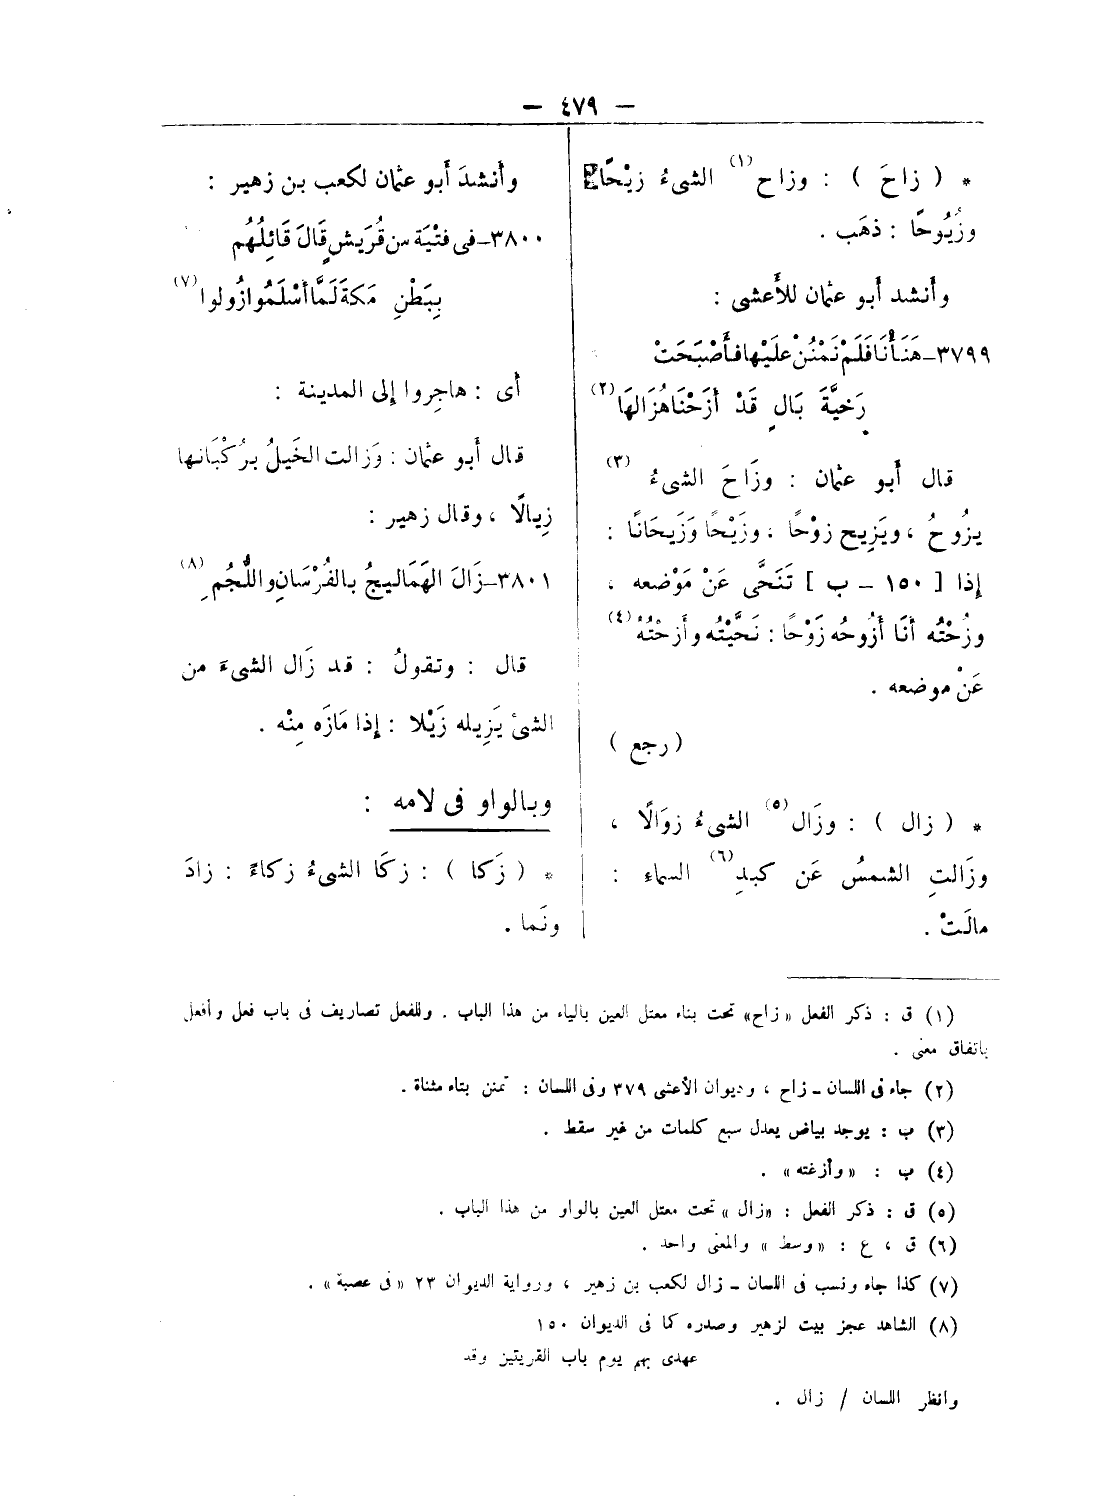 — ٤٧٩ —
* ( زاحَ ) : وزاح (١) الشىءُ زيْحًا
وزُيُوحًا : ذهَب .
وأنشد أبو عثمان للأَعشى :
٣٧٩٩–هَنَأْنَا فَلَمْ نَمْنُنْ عليْها فأَصْبَحَتْ
رَخيَّةَ بَالٍ قَدْ أزَحْنَا هُزَالهَا (٢)
قال أَبو عثمان : وزَاحَ الشىءُ (٣)
يزُوحُ ، ويَزِيح زوْحًا ، وزَيْحًا وَزَيحَانًا :
إذا [ ١٥٠ – ب ] تَنَحَّى عَنْ مَوْضعه ،
وزُحْتُه أنَا أَزُوحُه زَوْحًا : نَحَّيْتُه وأَزحْتُهُ (٤)
عَنْ موضعه .
( رجع )
* ( زال ) : وزَال (٥) الشىءُ زوَالًا ،
وزَالتِ الشمسُ عَن كبدِ (٦) السماء :
مالَتْ .
وأَنشدَ أَبو عثمان لكعب بن زهير :
٣٨٠٠–فى فتْيَة من قُرَيش قَالَ قَائِلُهُم
بِبَطْنِ مَكةَ لَمَّا أَسْلَمُوا زُولوا (٧)
أى : هاجِروا إلى المدينة :
قال أَبو عثمان : وَزالت الخَيلُ بركْبَانها
زِيالًا ، وقال زهير :
٣٨٠١–زَالَ الهَمَاليجُ بالفُرْسَانِ واللُّجُمِ (٨)
قال : وتقولُ : قد زَال الشىءَ من
الشئ يَزِيله زَيْلا : إذا مَازَه مِنْه .
وبالواو فى لامه :
* ( زَكا ) : زكَا الشىءُ زكاءً : زادَ
ونَما .
(١) ق : ذكر الفعل «زاح» تحت بناء معتل العين بالياء من هذا الباب . وللفعل تصاريف فى باب فعل وأفعل
باتفاق معنى .
(٢) جاء فى اللسان – زاح ، وديوان الأعشى ٣٧٩ وفى اللسان : تمنن بتاء مثناة .
(٣) ب : يوجد بياض يعدل سبع كلمات من غير سقط .
(٤) ب : «وأزغته» .
(٥) ق : ذكر الفعل : «زال» تحت معتل العين بالواو من هذا الباب .
(٦) ق ، ع : «وسط» والمعنى واحد .
(٧) كذا جاء ونسب فى اللسان – زال لكعب بن زهير ، ورواية الديوان ٢٣ «فى عصبة» .
(٨) الشاهد عجز بيت لزهير وصدره كما فى الديوان ١٥٠
عهدى بهم يوم باب القريتين وقد
وانظر اللسان / زال .